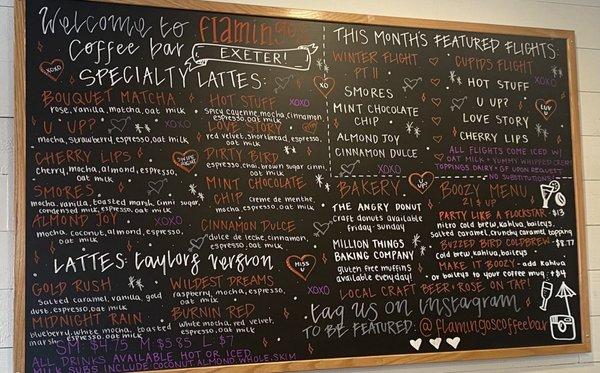 Welcome to flamingos
Coffee bar
EXETER!
SPECIALTY LATTES:
BOUQUET MATCHA
rose, vanilla, matcha, oat milk
U UP?
mocha, strawberry, espresso, oat milk
CHERRY LIPS
cherry, mocha, almond, espresso,
oat milk
SMORES
mocha, vanilla, toasted marsh, cinni sugar,
condensed milk, espresso, oat milk
ALMOND JOY
mocha, coconut, almond, espresso,
oat milk
HOT STUFF
spicy cayenne mocha, cinnamon,
espresso, oat milk
LOVE STORY
red velvet, shortbread, espresso,
oat milk
DIRTY BIRD
espresso, chai, brown sugar cinni,
oat milk
MINT CHOCOLATE
CHIP creme de menthe,
mocha, espresso, oat milk
CINNAMON DULCE
dulce de leche, cinnamon,
espresso, oat milk
XOXO
XOXO
XOXO
XOXO
XOXO
XO
LATTES: Taylors Version
MISS U
GOLD RUSH
Salted caramel, vanilla, gold
dust, espresso, oat milk
MIDNIGHT RAIN
blueberry, white mocha, toasted
marsh, espresso, oat milk
WILDEST DREAMS
raspberry, mocha, espresso,
oat milk
XOXO
BURNIN RED
white mocha, red velvet,
espresso, oat milk
SM: $4.75 M: $5.85 L: $7
ALL DRINKS AVAILABLE HOT OR ICED
MILK SUBS INCLUDE: COCONUT, ALMOND, WHOLE, SKIM
THIS MONTH'S FEATURED FLIGHTS:
WINTER FLIGHT
PT II
SMORES
MINT CHOCOLATE
CHIP
ALMOND JOY
CINNAMON DULCE
CUPIDS FLIGHT
HOT STUFF
XOXO
U UP?
LOVE STORY
CHERRY LIPS
LUV U
ALL FLIGHTS COME ICED W/
OAT MILK + YUMMY WHIPPED CREAM
TOPPINGS DAIRY + GF UPON REQUEST
NO SUBSTITUTIONS
BAKERY:
THE ANGRY DONUT
craft donuts available
friday-sunday
MILLION THINGS
BAKING COMPANY
gluten free muffins
available everyday!
BOOZY MENU
21 & UP
PARTY LIKE A FLOCKSTAR -$13
nitro cold brew, kahlua, baileys,
Salted caramel, crunchy caramel topping
BUZZED BIRD COLDBREW -$8.77
Cold brew, kahlua, baileys
MAKE IT BOOZY - add kahlua
or baileys to your coffee mug +$4
LOCAL CRAFT BEER + ROSE ON TAP!
tag us on instagram
TO BE FEATURED: @flamingoscoffeebar